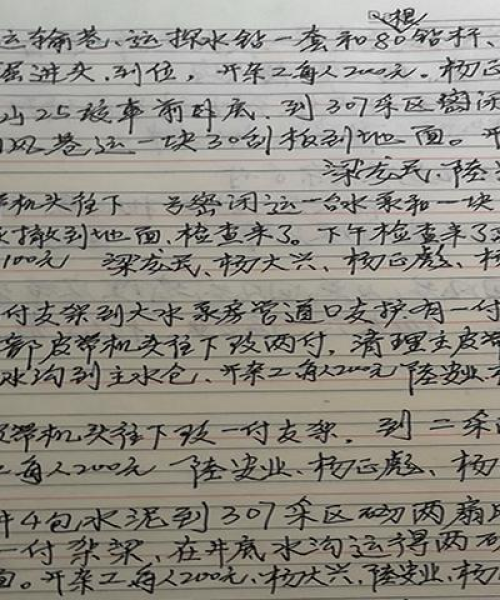 根
运输巷、运探水钻一套和80钻杆、
掘进头、到位，开杂工每人200元。杨正
25 车前卧底，到307采区密闭
风巷运一块30刮板到地面。开
梁龙民、陆
机头往下 号密闭运一台水泵和一块
撤到地面、检查来了。下午检查来了
100元 梁龙民、杨大兴、杨正彪、杨
付支架到大水泵房管道口支护有一付
部皮带机头往下改两付，清理主皮带
水沟到主水仓、开杂工每人200元 陆安业、
带机头往下改一付支架. 到二采
每人200元 陆安业、杨正彪、杨
井4包水泥到307采区砌两扇
一付架梁，在井底水沟运得两
面。开杂工每人200元、杨大兴、陆安业、杨